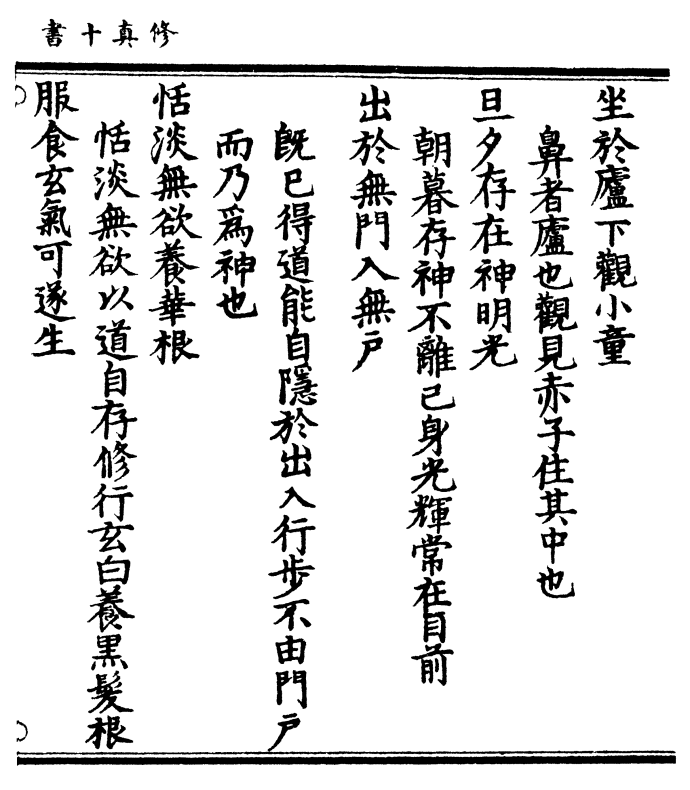 修真十書
坐於廬下觀小童
鼻者廬也觀見赤子住其中也
旦夕存在神明光
朝暮存神不離己身光輝常在目前
出於無門入無戶
既已得道能自隱於出入行步不由門戶
而乃為神也
恬淡無欲養華根
恬淡無欲以道自存修行玄白養黑髮根
服食玄氣可遂生